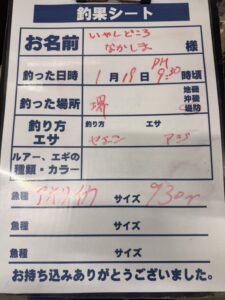 釣果シート
お名前 いやしどころ ながしま 様
釣った日時 1月19日 PM 9:30 時頃
釣った場所 堺 地磯 沖磯 堤防
釣り方 エサ 釣り方 エサ
アジ
ルアー、エギの種類・カラー
魚種 アオリイカ サイズ 930g
魚種 サイズ
魚種 サイズ
お持ち込みありがとうございました。